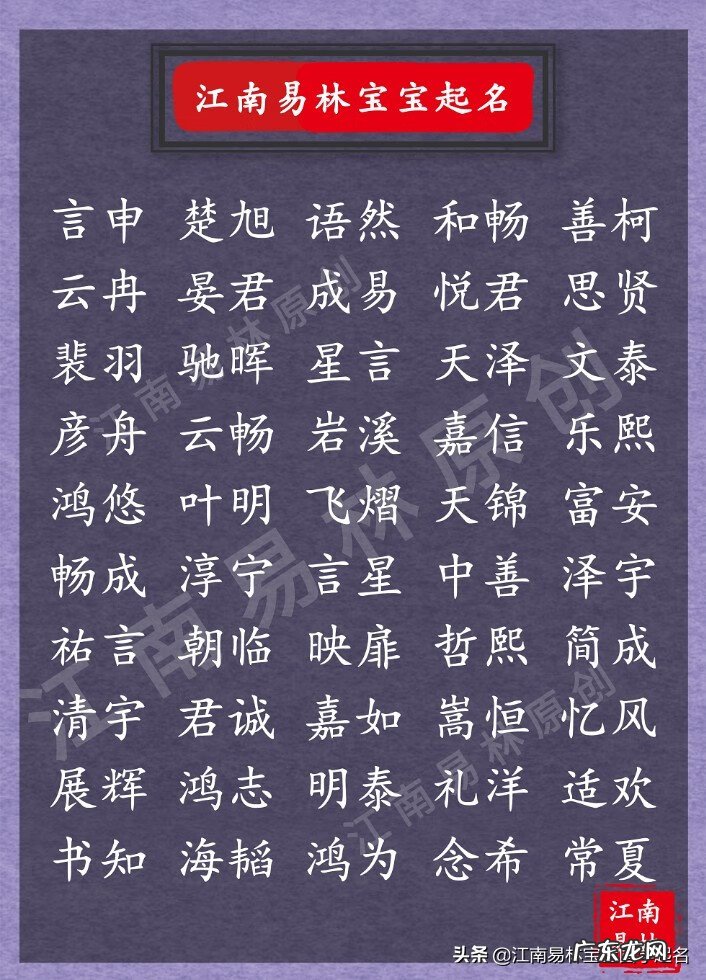 江南易林宝宝起名
言申 楚旭 语然 和畅 善柯
云冉 晏君 成易 悦君 思贤
裴羽 驰晖 星言 天泽 文泰
彦舟 云畅 岩溪 嘉信 乐熙
鸿悠 叶明 飞熠 天锦 富安
畅成 淳宁 言星 中善 泽宇
祐言 朝临 映扉 哲熙 简成
清宇 君诚 嘉如 嵩恒 忆风
展辉 鸿志 明泰 礼洋 适欢
书知 海韬 鸿为 念希 常夏
江南易林原创
江南易林原创
江南易林原创
江南
头条 @江南易林宝
起名
广东龙网